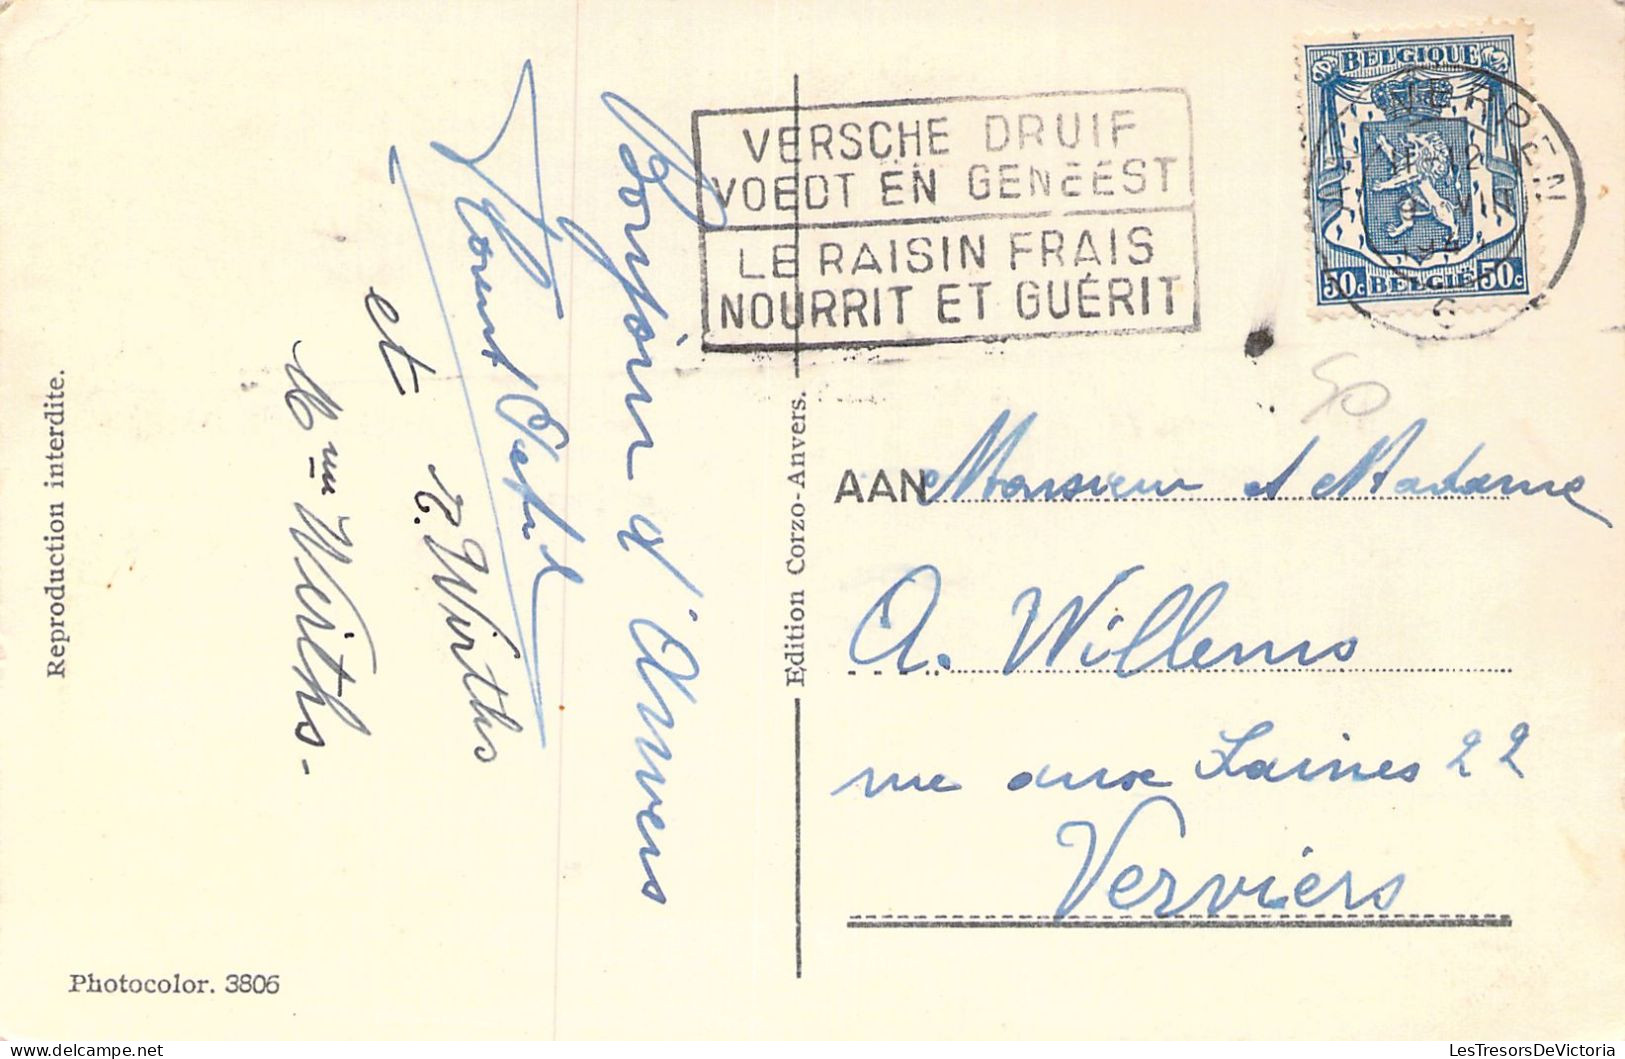 Reproduction interdite.
Photocolor. 3806
Bonjour d'Anvers
Florent
R. Wirths
et
Mme Wirths -
Edition Corzo-Anvers.
VERSCHE DRUIF
VOEDT EN GENEEST
LE RAISIN FRAIS
NOURRIT ET GUÉRIT
BELGIQUE
50c BELGIË 50c
ANTWERPEN
50
AAN Monsieur et Madame
A. Willems
rue aux Laines 22
Verviers
LesTresorsDeVictoria